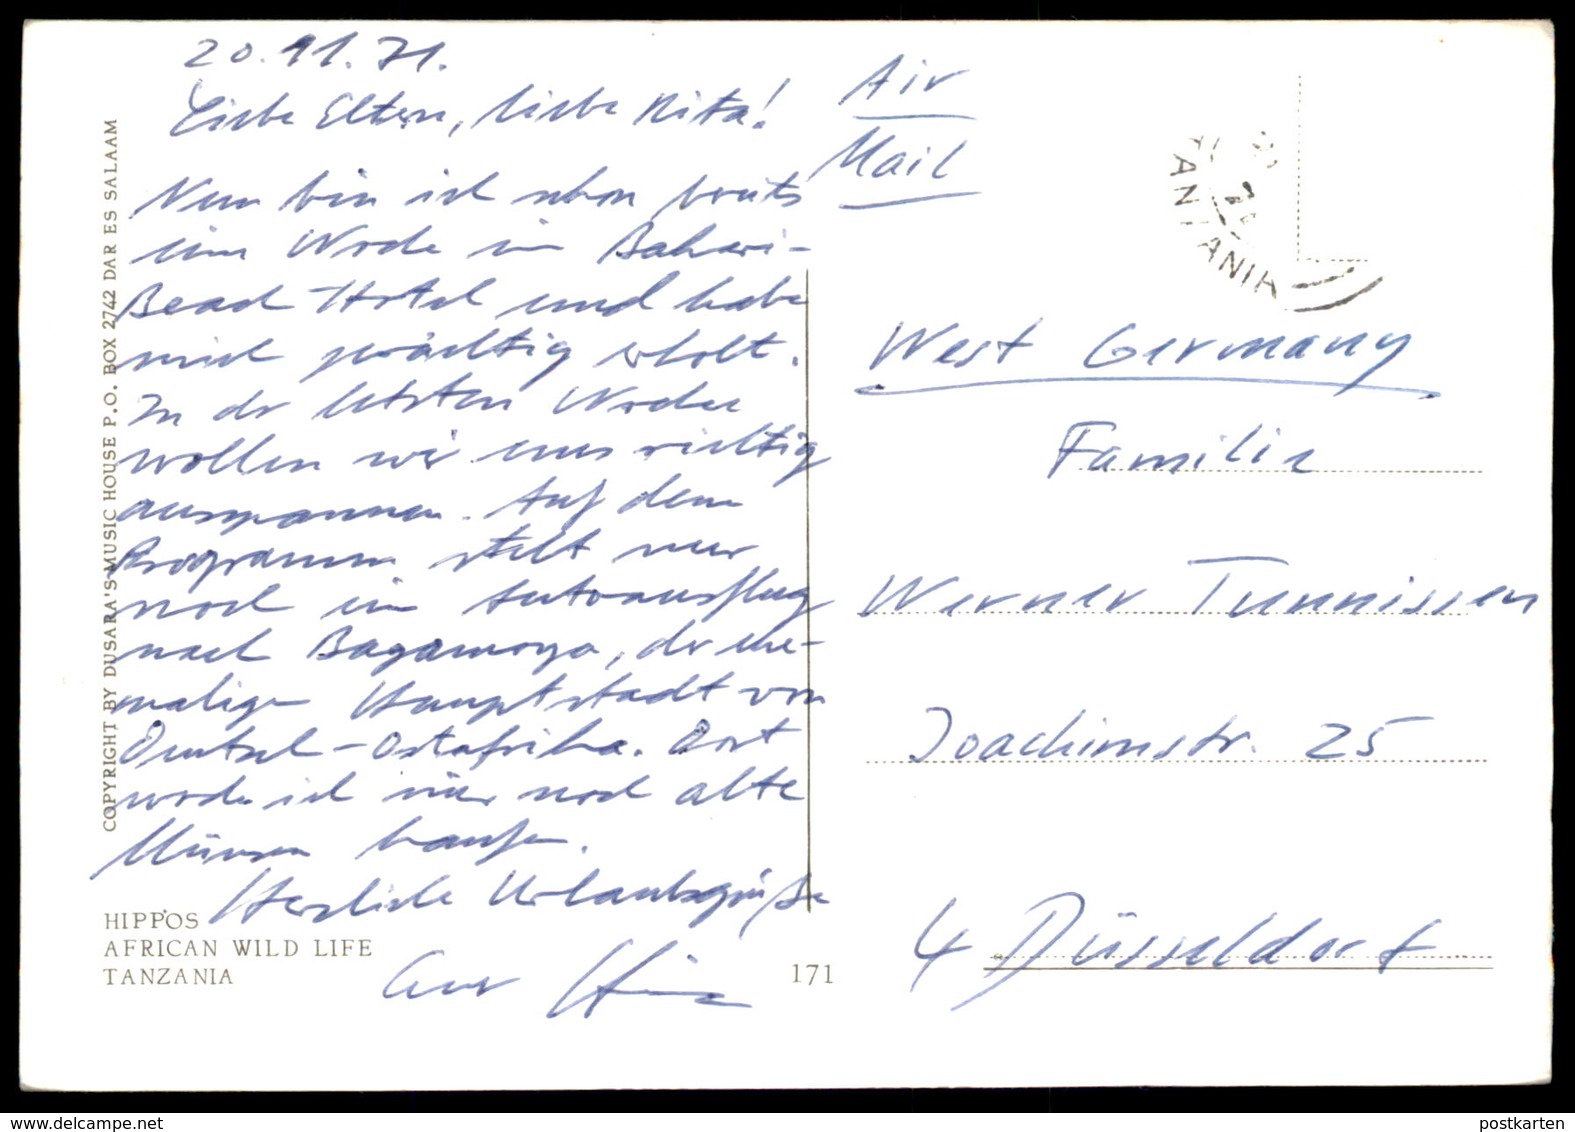 20.11.71.
Liebe Eltern, liebe Rita!
Nun bin ich schon bereits
eine Woche im Bahari-
Beach Hotel und habe
mich prächtig erholt.
In der letzten Woche
wollen wir uns richtig
ausspannen. Auf dem
Programm steht nur
noch ein Autoausflug
nach Bagamoyo, der ehe-
maligen Hauptstadt von
Deutsch-Ostafrika. Dort
werde ich mir noch alte
Münzen kaufen.
Herzliche Urlaubsgrüße
Euer Heinz
Air
Mail
TANZANIA
West Germany
Familie
Werner Tunnissen
Joachimstr. 25
4 Düsseldorf
COPYRIGHT BY DUSARA'S MUSIC HOUSE P.O. BOX 2742 DAR ES SALAAM
HIPPOS
AFRICAN WILD LIFE
TANZANIA
171
www.delcampe.net
postkarten